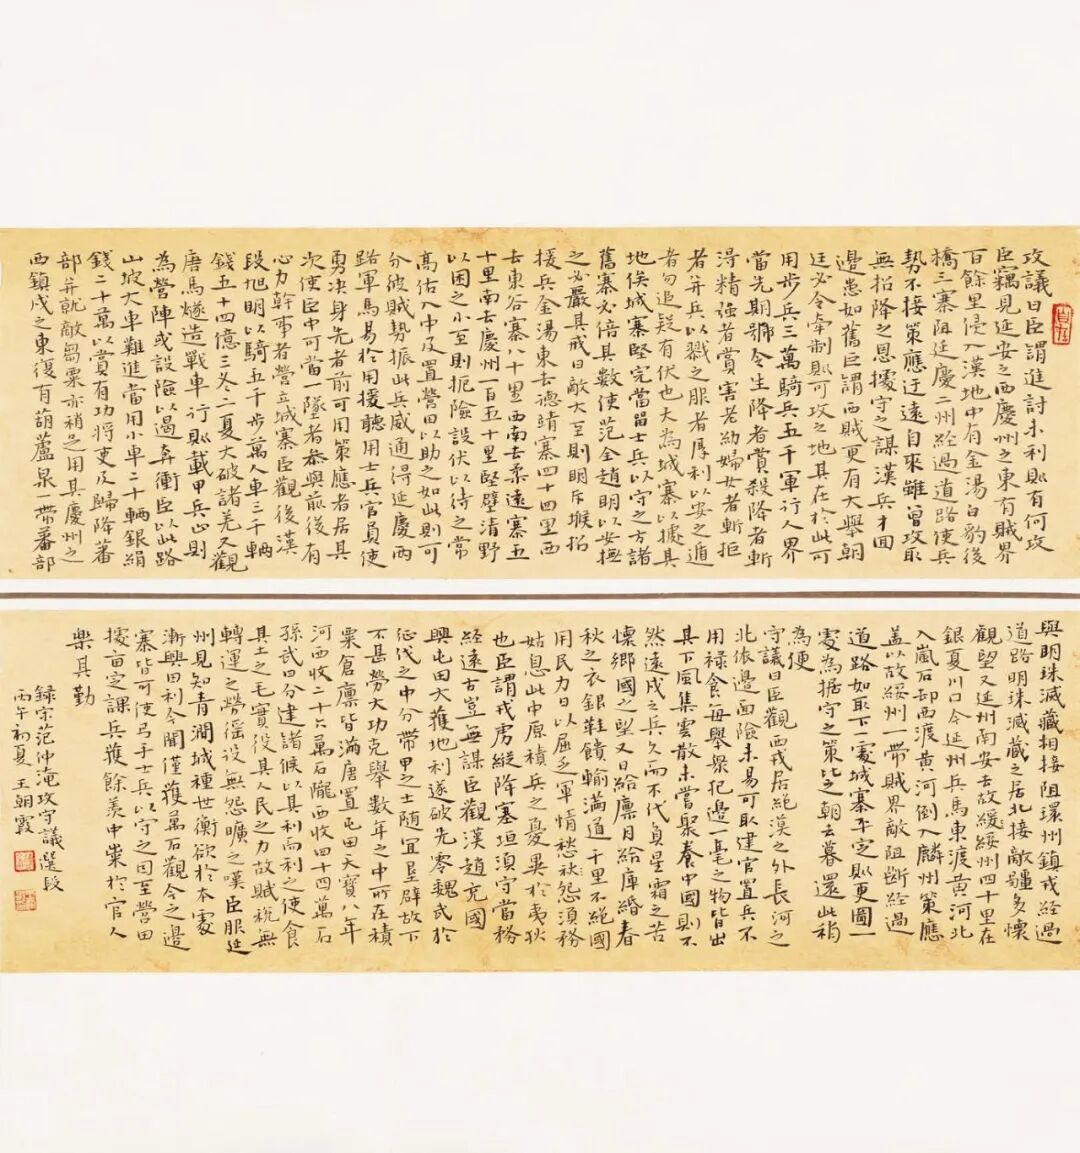 攻議曰臣謂進討未利則有何攻
臣竊見延安之西慶州之東有賊界
百餘里侵入漢地中有金湯白豹後
橋三寨阻延慶二州經過道路使兵
勢不接策應迂遠自來雖曾攻取
無招降之恩據守之謀漢兵才回
邊患如舊臣謂西賊更有大舉朝
廷必令牽制則可攻之地其在於此可
用步兵三萬騎兵五千軍行入界
當先期號令生降者賞殺降者斬
得精強者賞害老幼婦女者斬拒
者并兵以戮之服者厚利以安之遁
者勿追疑有伏也大為城寨以據其
地俟城寨堅完當留士兵以守之方諸
舊寨必倍其數使范全趙明以安撫
之必嚴其戒曰敵大至則明斥堠招
援兵金湯東去德靖寨四十四里西
去東谷寨八十里西南去柔遠寨五
十里南去慶州一百五十里堅壁清野
以困之小至則扼險設伏以待之常
高估入中及置營田以助之如此則可
分彼賊勢振此兵威通得延慶兩
路軍馬易於用援聽用士兵官員使
勇決身先者前可用策應者居其
次使臣中可當一隊者參與前後有
心力幹事者營立城寨臣觀後漢
段熲明以騎五千步萬人車三千輛
錢五十四億三冬二夏大破諸羌又觀
唐馬燧造戰車行則載甲兵止則
為營陣或設險以遏奔衝臣以此路
山坡大車難進當用小車二十輛銀絹
錢二十萬以賞有功將吏及歸降蕃
部并就敵芻粟亦稍足用其慶州之
西鎮戎之東復有葫蘆泉一帶蕃部
與明珠滅藏相接阻環州鎮戎經過
道路明珠滅藏之居北接敵疆多懷
觀望又延州南安去故綏州四十里在
銀夏川口今延州兵馬東渡黃河北
入嵐石卻西渡黃河倒入麟州策應
蓋以故綏州一帶賊界敵阻斷經過
道路如取下一處城寨平定則更圖一
處為据守之策比之朝去暮還此稍
為便
守議曰臣觀西戎居絕漠之外長河之
北依邊面險未易可取建官置兵不
用祿食每舉眾犯邊一毫之物皆出
其下風集雲散未嘗聚養中國則不
然遠戍之兵久而不代負星霜之苦
懷鄉國之望又日給廩月給庫緡春
秋之衣銀鞋饋輸滿道千里不絕國
用民力日以屈乏軍情愁怨須務
姑息此中原積兵之憂異於夷狄
也臣謂戎虜縱降塞垣須守當務
經遠古豈無謀臣觀漢趙充國
興屯田大獲地利遂破先零魏武於
征伐之中分帶甲之士隨宜墾辟故下
不甚勞大功克舉數年之中所在積
粟倉廩皆滿唐置屯田天寶八年
河西收二十六萬石隴西收四十四萬石
孫武曰分建諸侯以其利而利之使食
其土之毛實役其人民之力故賦稅無
轉運之勞徭役無怨曠之嘆臣服延
州見知青澗城種世衡欲於本處
漸興田利今聞僅獲萬石觀今之邊
寨皆可使弓手士兵以守之因至營田
據亩定課兵獲餘羨中糶於官人
樂其勤
錄宋范仲淹攻守議選段
丙午初夏 王朝霞